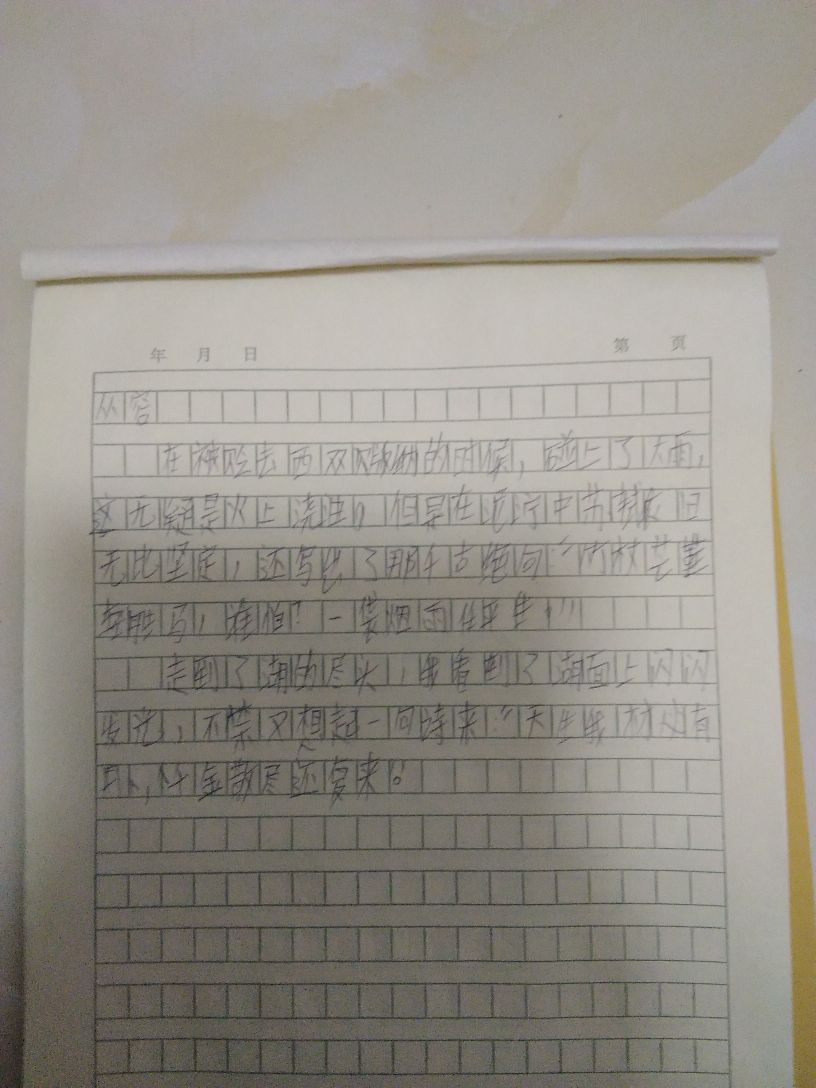 年 月 日 第 页
从容
在被贬去西双版纳的时候,碰上了大雨,
这无疑是火上浇油。但是在泥泞中苏轼
无比坚定,还写出了那千古绝句:“竹杖芒鞋
轻胜马,谁怕?一蓑烟雨任平生!”
走到了湖的尽头,我看到了湖面上闪闪
发光,不禁又想起一句诗来:“天生我材必有
用,千金散尽还复来。